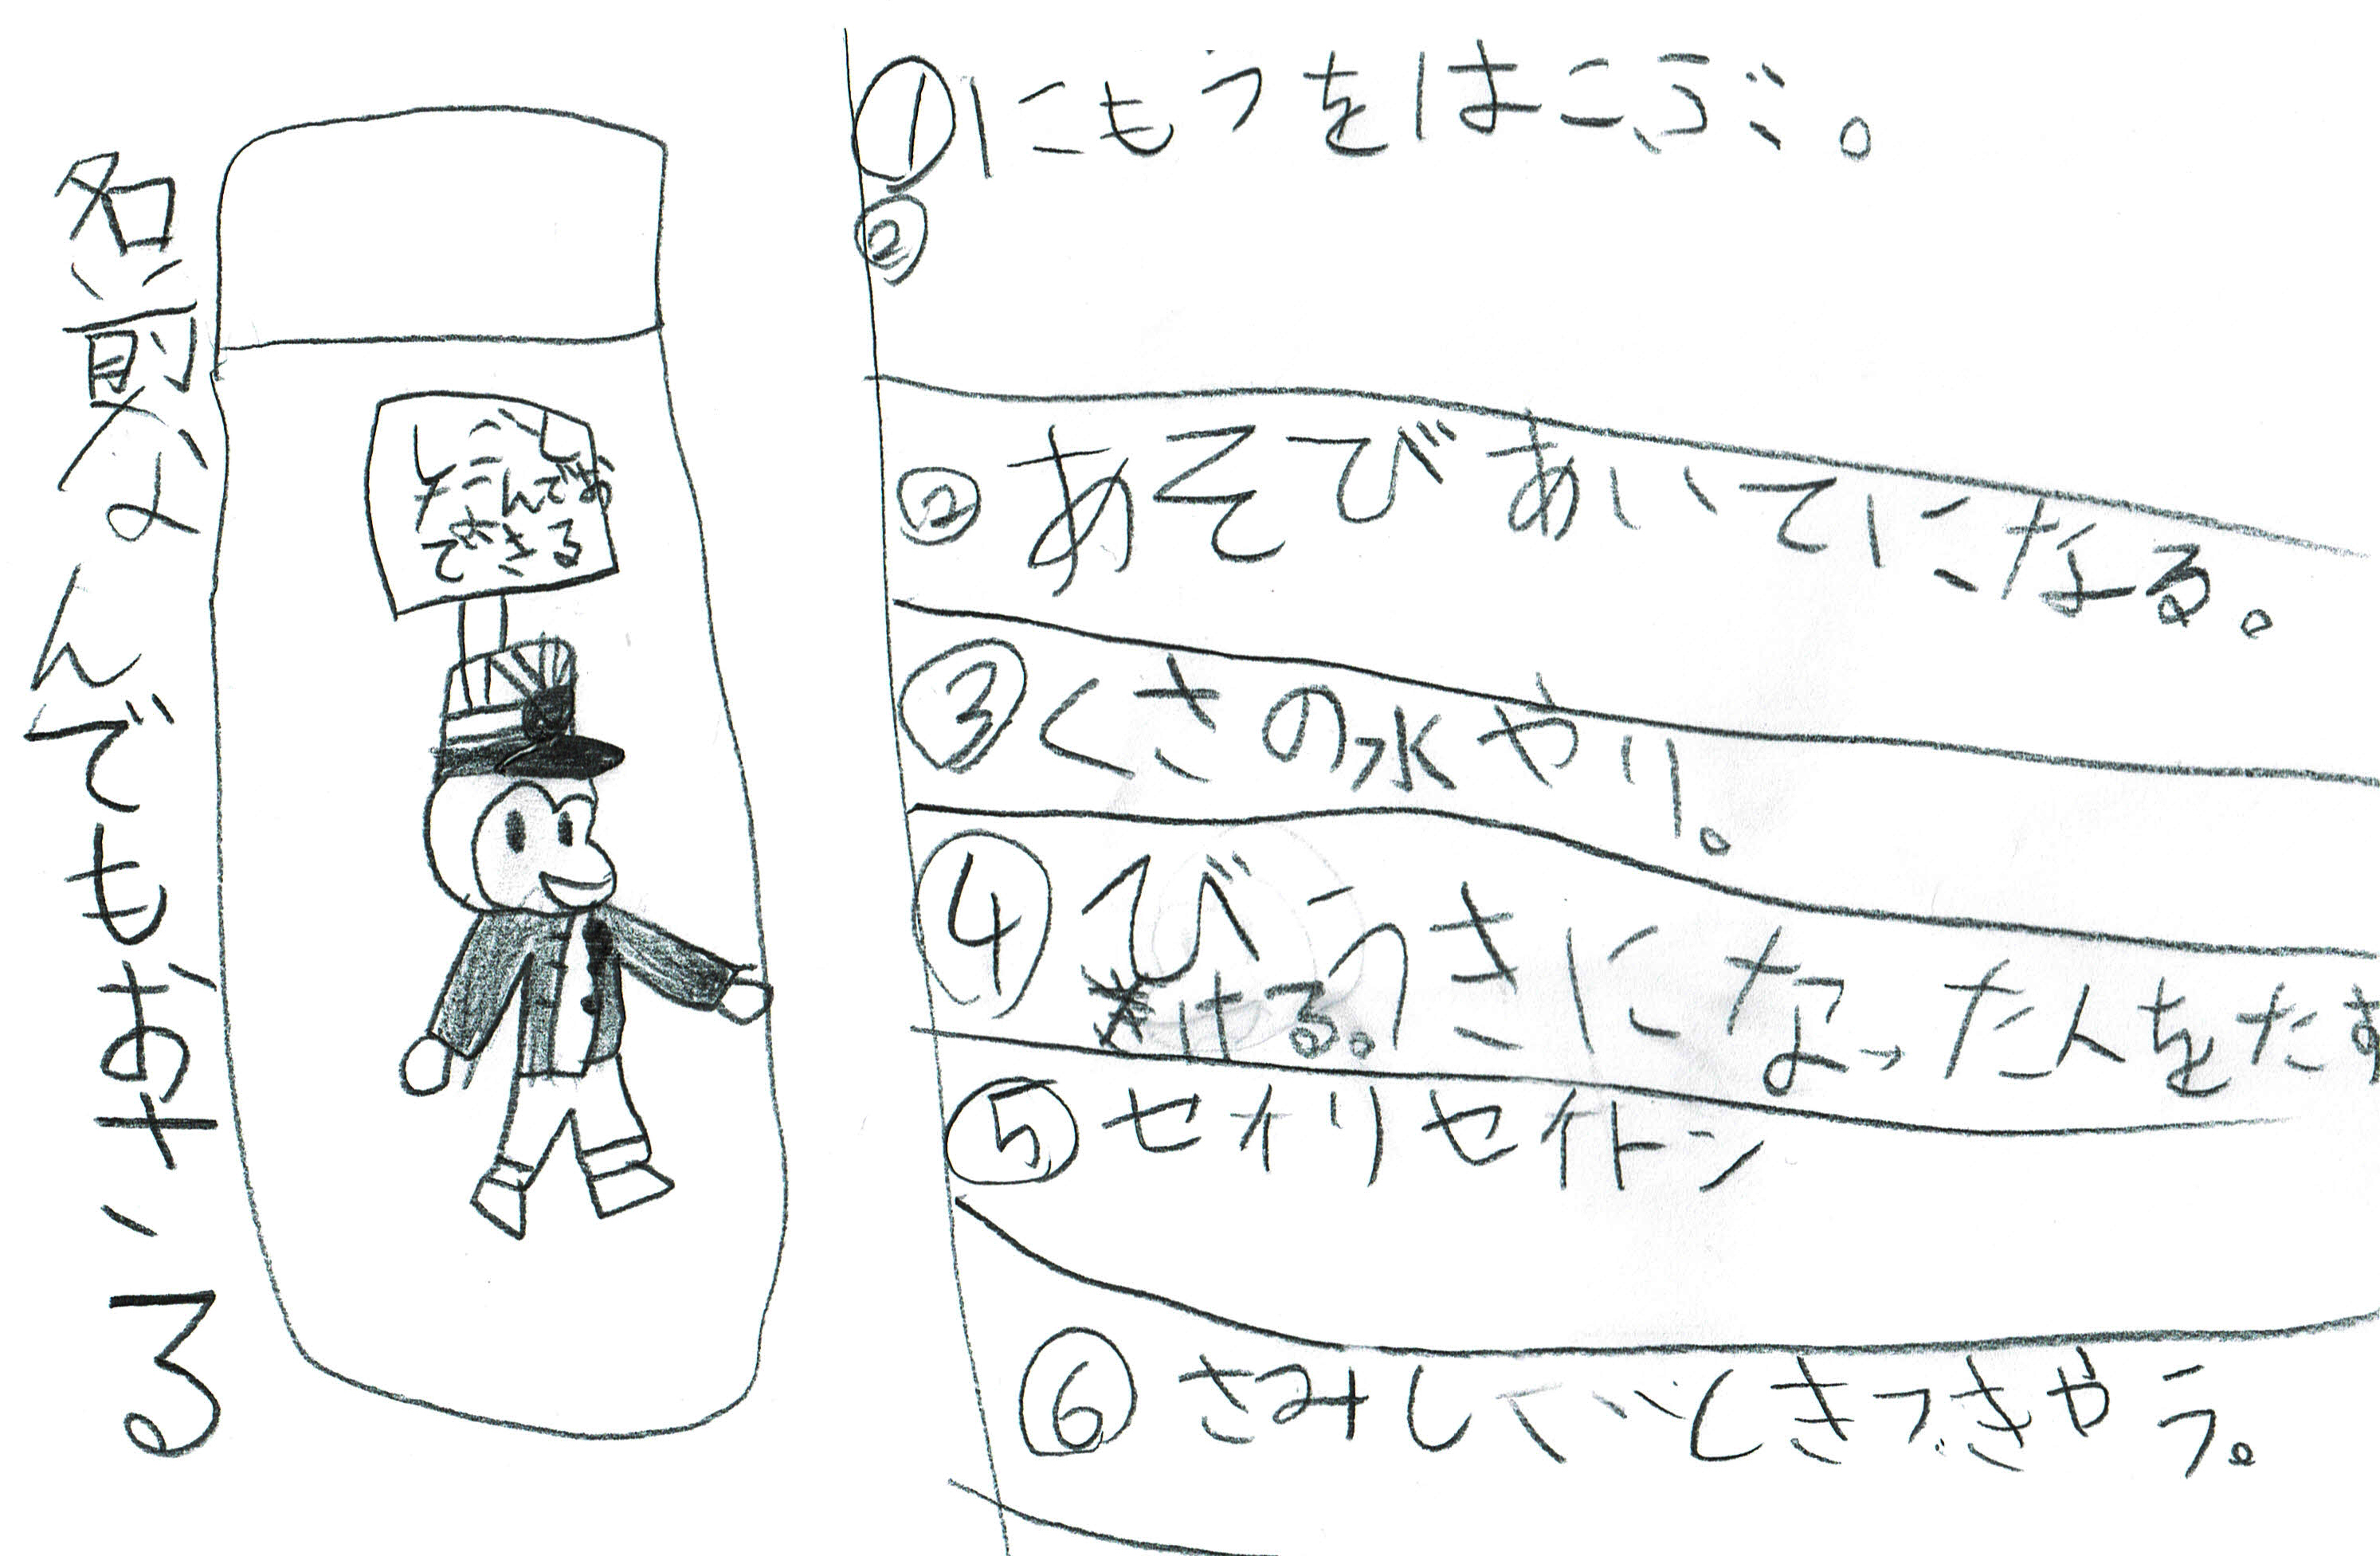 名前なんでもおさる
できる
①にもつをはこぶ。
②
②あそびあいてになる。
③くさの水やり。
④びうきになった人をたす
ける。
⑤セオリセイトン
⑥さみしいときつきやう。